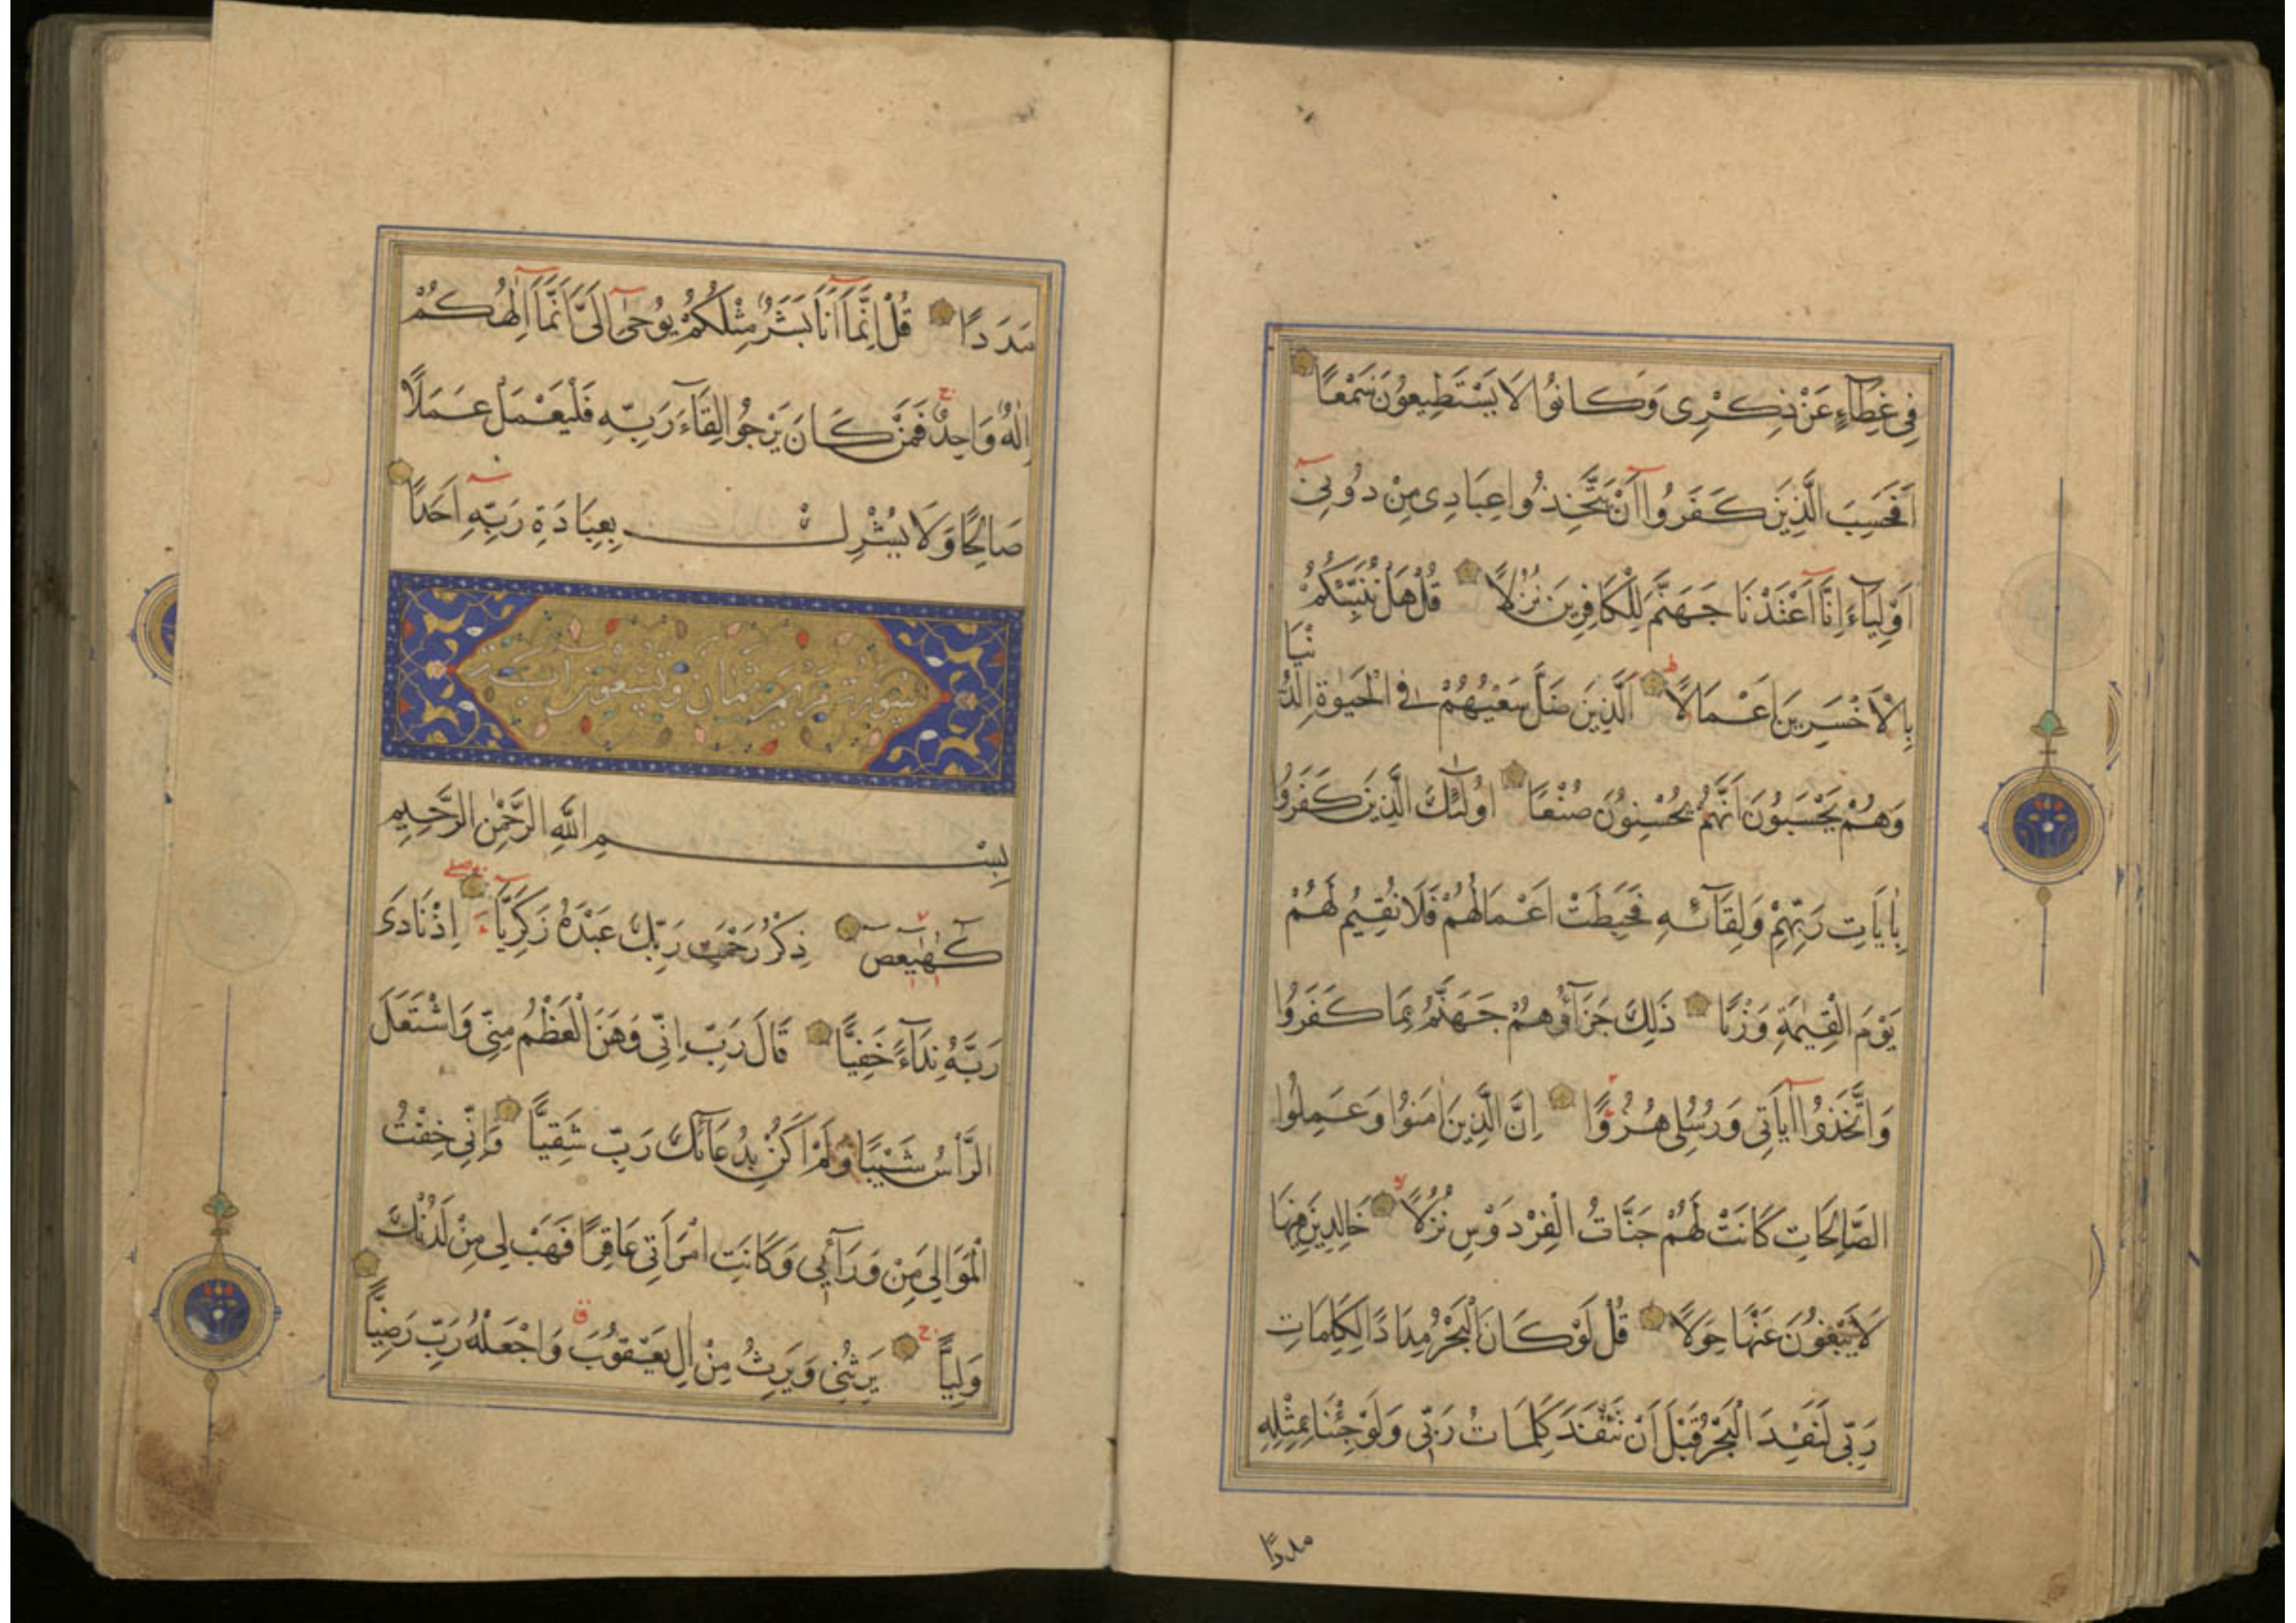 فِي غِطَآءٍ عَنْ ذِكْرِى وَكَانُوا لَا يَسْتَطِيعُونَ سَمْعًا
اَفَحَسِبَ الَّذِينَ كَفَرُوا اَنْ يَتَّخِذُوا عِبَادِى مِنْ دُونِىٓ
اَوْلِيَآءَ اِنَّا اَعْتَدْنَا جَهَنَّمَ لِلْكَافِرِينَ نُزُلًا قُلْ هَلْ نُنَبِّئُكُمْ
بِالْاَخْسَرِينَ اَعْمَالًا اَلَّذِينَ ضَلَّ سَعْيُهُمْ فِى الْحَيٰوةِ الدُّنْيَا
وَهُمْ يَحْسَبُونَ اَنَّهُمْ يُحْسِنُونَ صُنْعًا اُولٰٓئِكَ الَّذِينَ كَفَرُوا
بِاٰيَاتِ رَبِّهِمْ وَلِقَآئِهِ فَحَبِطَتْ اَعْمَالُهُمْ فَلَا نُقِيمُ لَهُمْ
يَوْمَ الْقِيٰمَةِ وَزْنًا ذَلِكَ جَزَآؤُهُمْ جَهَنَّمُ بِمَا كَفَرُوا
وَاتَّخَذُوا اٰيَاتِى وَرُسُلِى هُزُوًا اِنَّ الَّذِينَ اٰمَنُوا وَعَمِلُوا
الصَّالِحَاتِ كَانَتْ لَهُمْ جَنَّاتُ الْفِرْدَوْسِ نُزُلًا خَالِدِينَ فِيهَا
لَا يَبْغُونَ عَنْهَا حِوَلًا قُلْ لَوْ كَانَ الْبَحْرُ مِدَادًا لِكَلِمَاتِ
رَبِّى لَنَفِدَ الْبَحْرُ قَبْلَ اَنْ تَنْفَدَ كَلِمَاتُ رَبِّى وَلَوْ جِئْنَا بِمِثْلِهِ
مددًا
مَدَدًا قُلْ اِنَّمَا اَنَا بَشَرٌ مِثْلُكُمْ يُوحٰٓى اِلَىَّ اَنَّمَا اِلٰهُكُمْ
اِلٰهٌ وَاحِدٌ فَمَنْ كَانَ يَرْجُوا لِقَآءَ رَبِّهِ فَلْيَعْمَلْ عَمَلًا
صَالِحًا وَلَا يُشْرِكْ بِعِبَادَةِ رَبِّهِ اَحَدًا
سورة مريم ثمان وتسعون اية
بِسْمِ اللّٰهِ الرَّحْمٰنِ الرَّحِيمِ
كٓهٰيٰعٓصٓ ذِكْرُ رَحْمَتِ رَبِّكَ عَبْدَهُ زَكَرِيَّآءَ اِذْ نَادَى
رَبَّهُ نِدَآءً خَفِيًّا قَالَ رَبِّ اِنِّى وَهَنَ الْعَظْمُ مِنِّى وَاشْتَعَلَ
الرَّأْسُ شَيْبًا وَلَمْ اَكُنْ بِدُعَآئِكَ رَبِّ شَقِيًّا وَاِنِّى خِفْتُ
الْمَوَالِىَ مِنْ وَرَآئِى وَكَانَتِ امْرَاَتِى عَاقِرًا فَهَبْ لِى مِنْ لَدُنْكَ
وَلِيًّا يَرِثُنِى وَيَرِثُ مِنْ اٰلِ يَعْقُوبَ وَاجْعَلْهُ رَبِّ رَضِيًّا